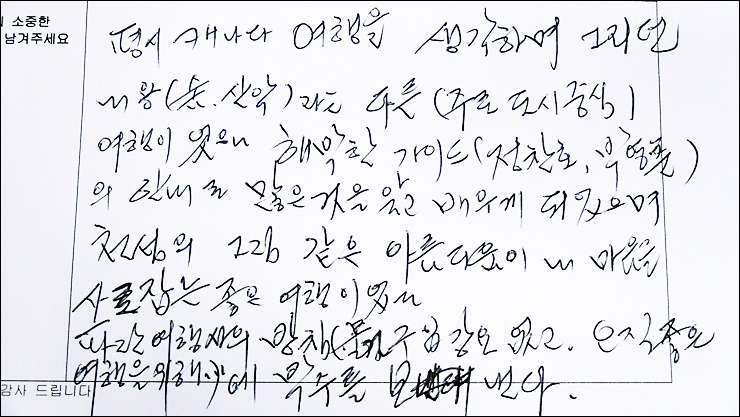 소중한
남겨주세요
평시 캐나다 여행을 생각하며 그리던
(눈.산악)과는 다른 (주로 도시중심)
여행이 였으나 해박한 가이드(정찬호, 박영준)
의 안내로 많은것을 알고 배우게 되었으며
천상의 그림 같은 아름다움이 내 마음을
사로잡는 좋은 여행이였다
파란여행사의 방침 구입강요 없고. 오직좋은
여행을위해 에 박수를 보낸다.
감사 드립니다